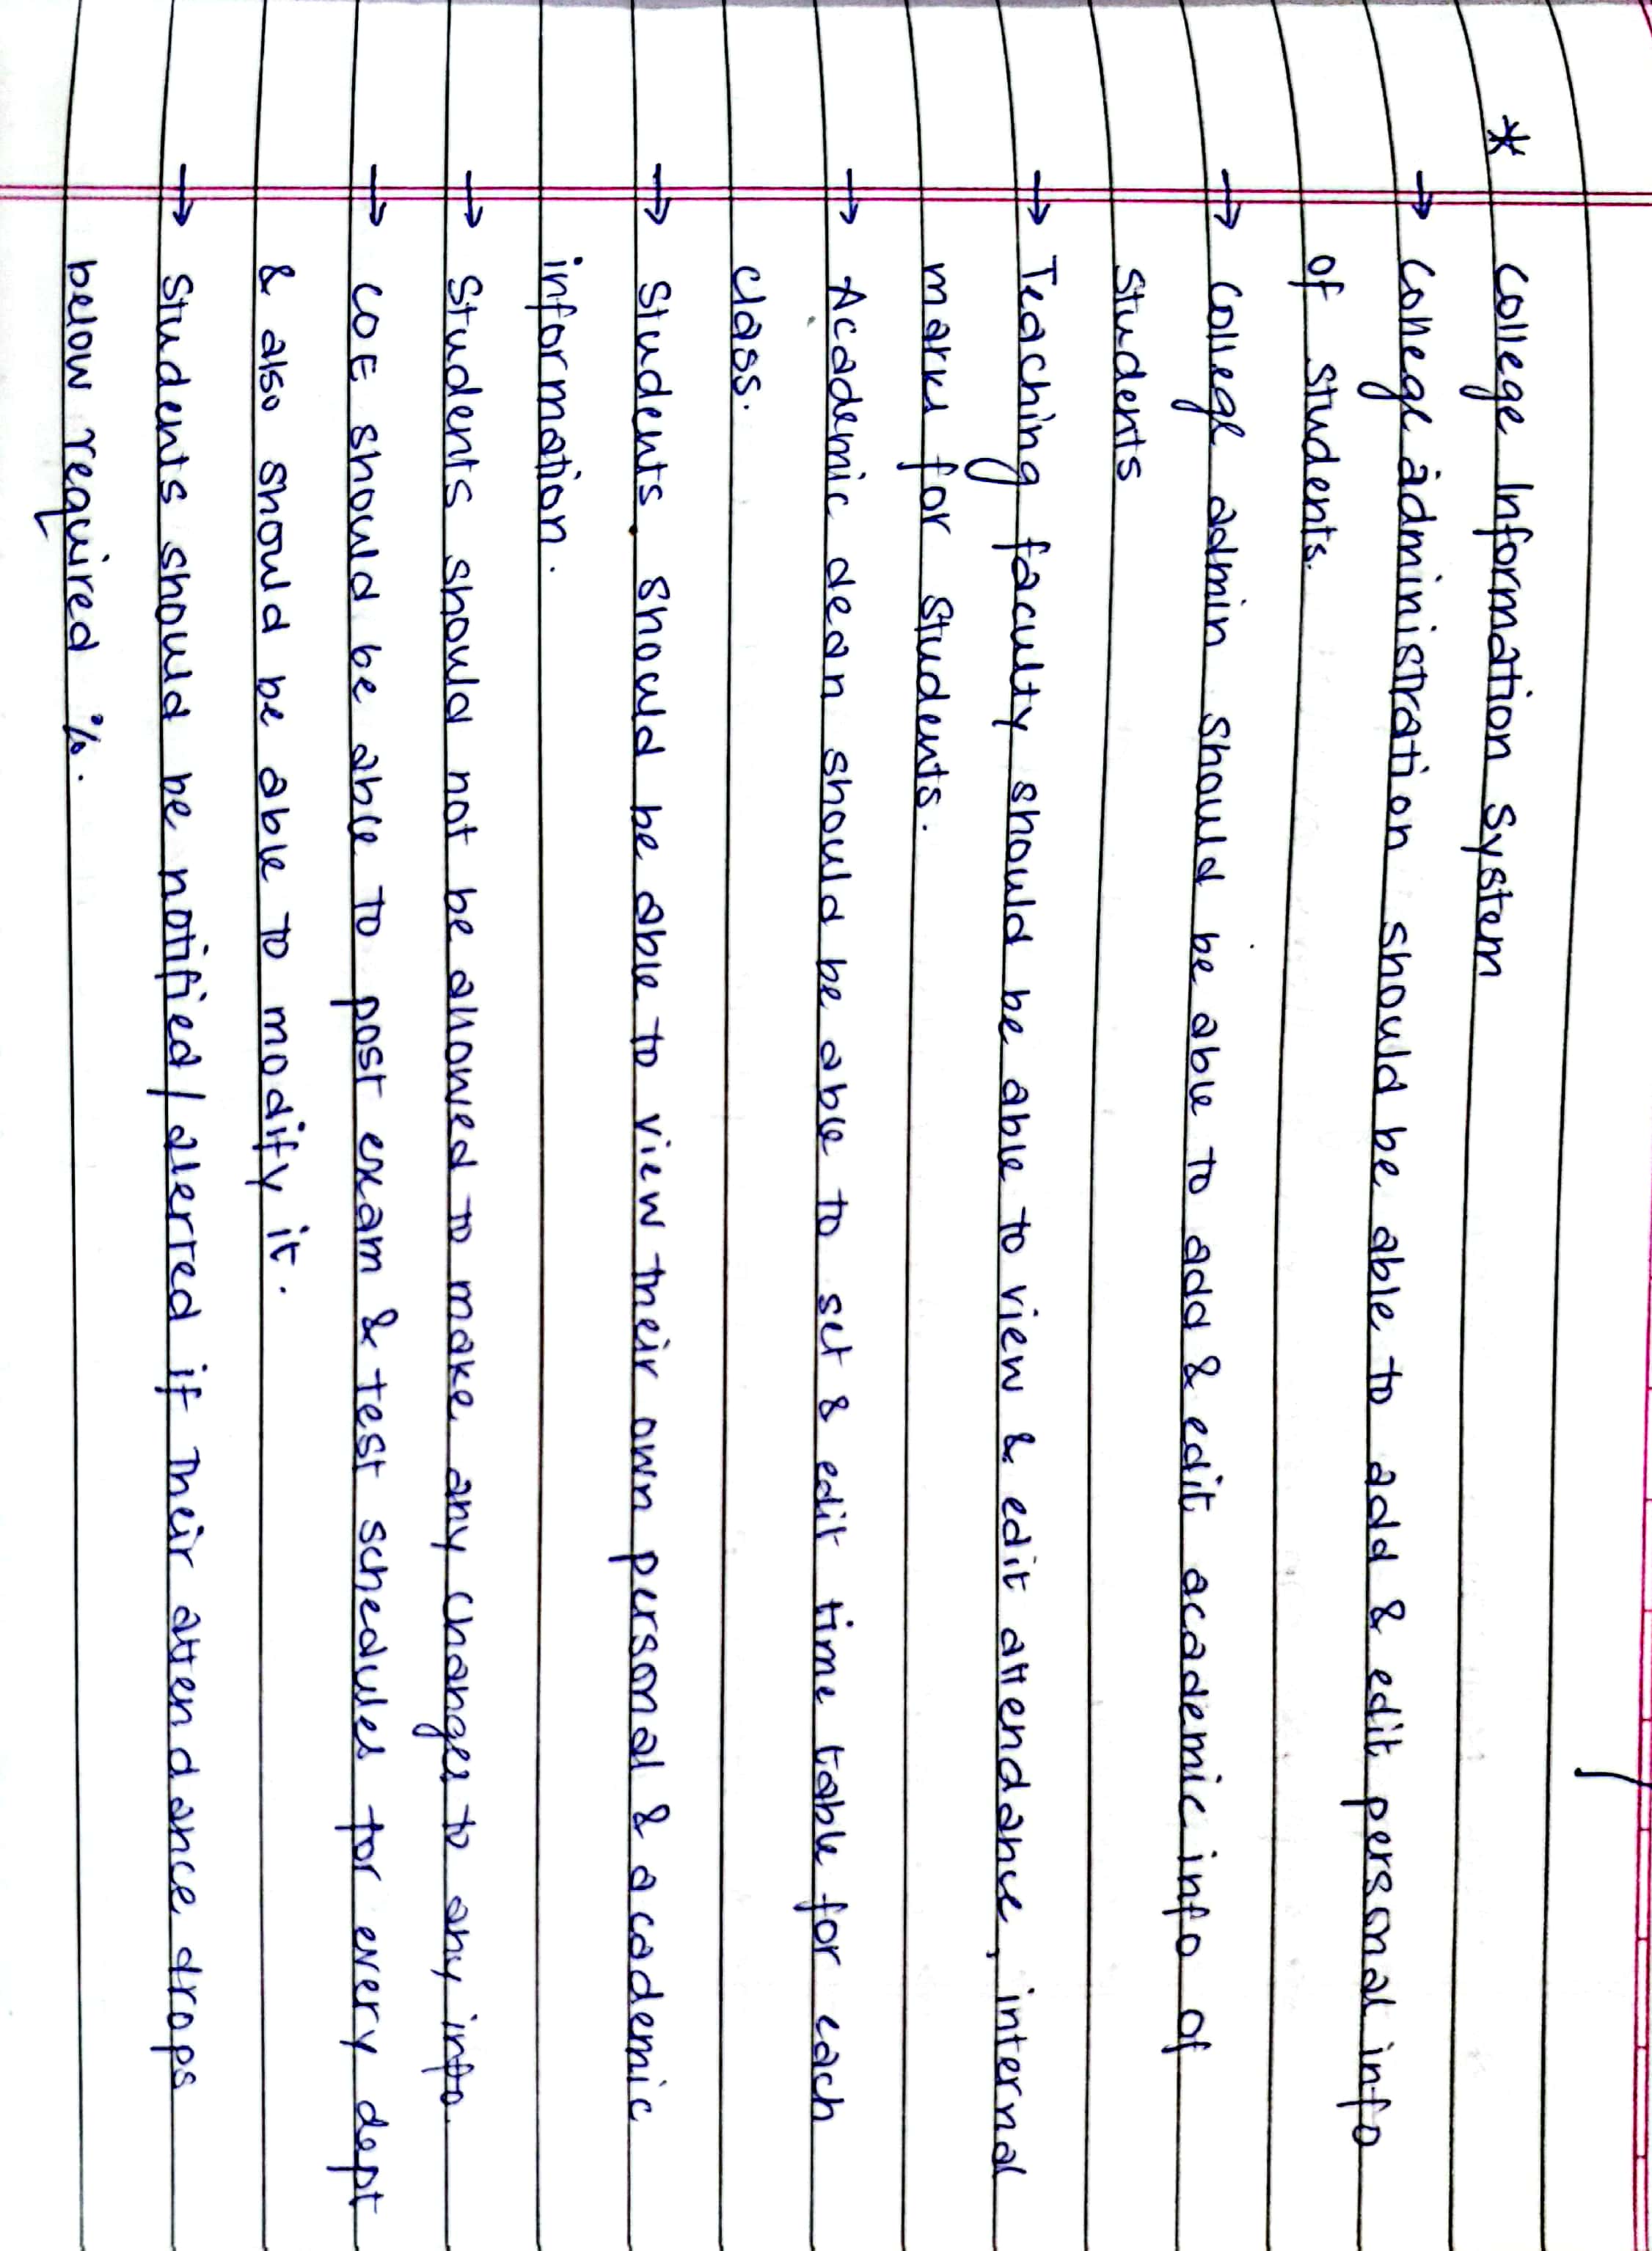 * College Information System
→ College administration should be able to add & edit personal info
of students.
→ College admin should be able to add & edit academic info of
students
→ Teaching faculty should be able to view & edit attendance, internal
marks for students.
→ Academic dean should be able to set & edit time table for each
class.
→ Students should be able to view their own personal & academic
information.
→ Students should not be allowed to make any changes to any info.
→ COE should be able to post exam & test schedules for every dept
& also should be able to modify it.
→ Students should be notified / alerted if their attendance drops
below required %.